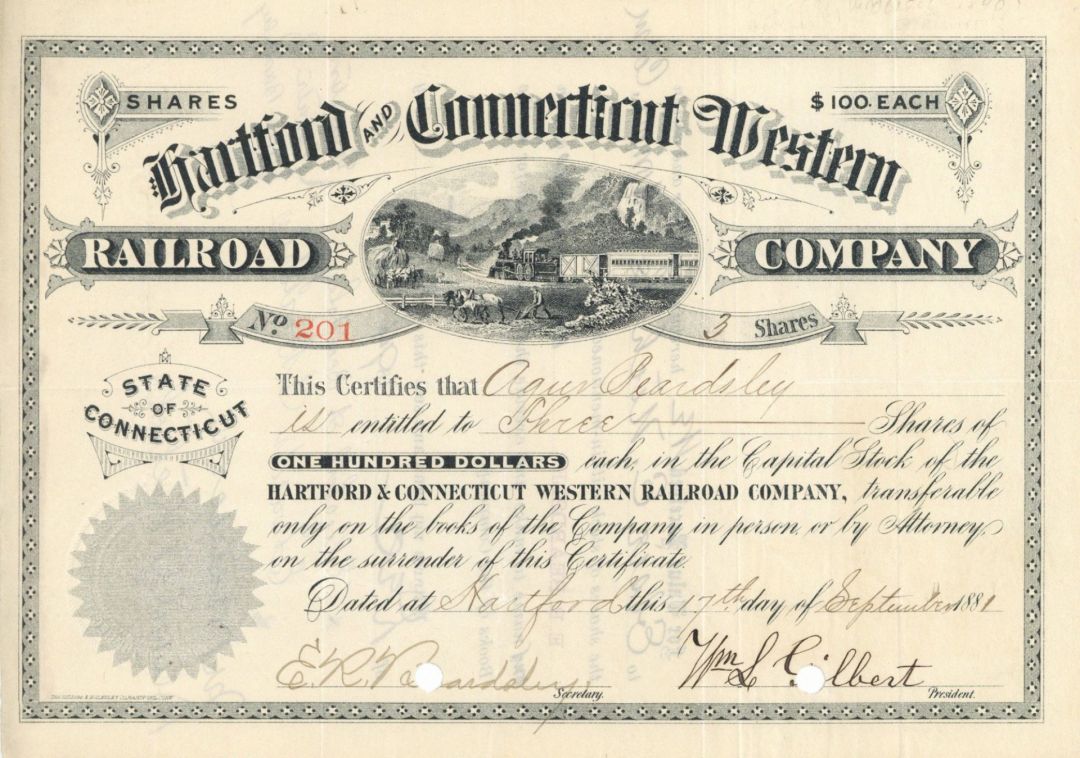 SHARES $100. EACH
Hartford AND Connecticut Western
RAILROAD COMPANY
No 201 3 Shares
STATE
OF
CONNECTICUT
This Certifies that Agur Beardsley
is entitled to Three Shares of
ONE HUNDRED DOLLARS each, in the Capital Stock of the
HARTFORD & CONNECTICUT WESTERN RAILROAD COMPANY, transferable
only on the books of the Company in person or by Attorney,
on the surrender of this Certificate.
Dated at Hartford this 17th day of September 1881
E. R. Beardsley Wm L Gilbert
Secretary. President.